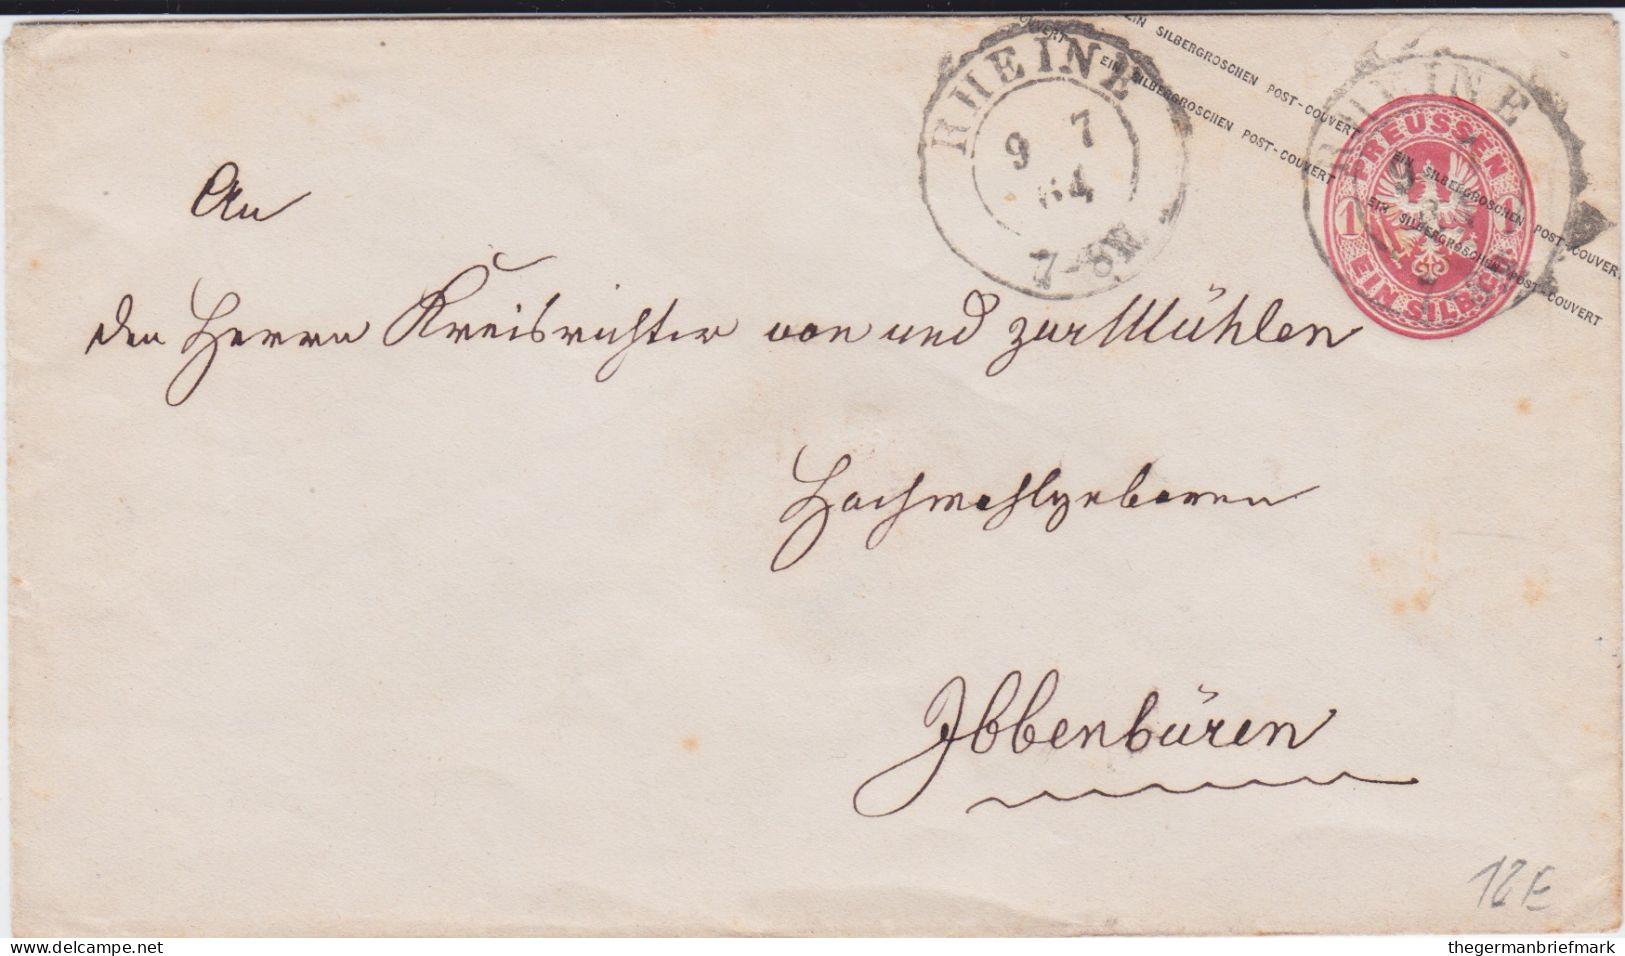 EIN SILBERGROSCHEN POST-COUVERT
EIN SILBERGROSCHEN POST-COUVERT
RHEINE
9 7
64
7-8N
RHEINE
9
PREUSSEN
1 1
EIN SILB.GR.
EIN SILBERGROSCHEN POST-COUVERT
EIN SILBERGROSCHEN POST-COUVERT
An
den Herrn Kreisrichter von und zur Mühlen
Hochwohlgeboren
Ibbenbüren
12E
delcampe.net
thegermanbriefmark